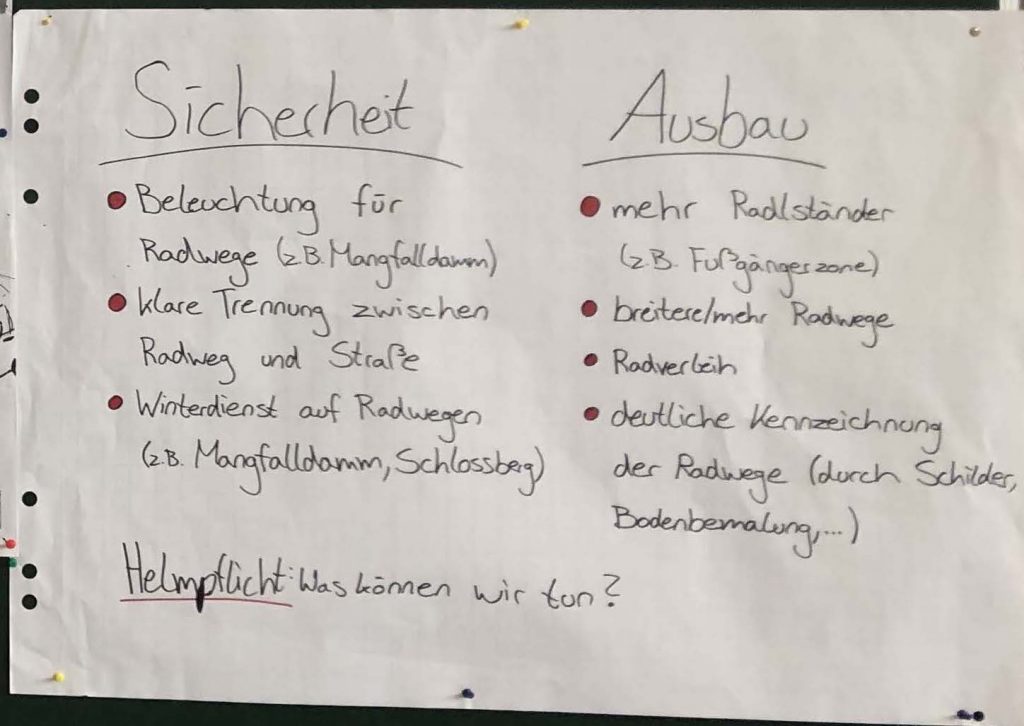 Sicherheit
• Beleuchtung für
Radwege (z.B. Mangfalldamm)
• klare Trennung zwischen
Radweg und Straße
• Winterdienst auf Radwegen
(z.B. Mangfalldamm, Schlossberg)
Helmpflicht: Was können wir tun?
Ausbau
• mehr Radlständer
(z.B. Fußgängerzone)
• breitere/mehr Radwege
• Radverleih
• deutliche Kennzeichnung
der Radwege (durch Schilder,
Bodenbemalung,...)